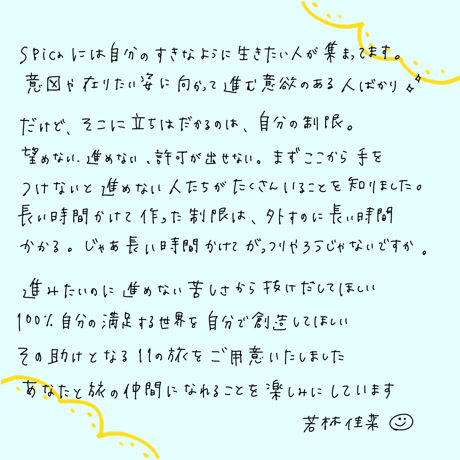 Spicaには自分のすきなように生きたい人が集まってます。
意図や在りたい姿に向かって進む意欲のある人ばかり
だけど、そこに立ちはだかるのは、自分の制限。
望めない、進めない、許可が出せない。まずここから手を
つけないと進めない人たちがたくさんいることを知りました。
長い時間かけて作った制限は、外すのに長い時間
かかる。じゃあ長い時間かけてがっつりやろうじゃないですか。
進みたいのに進めない苦しさから抜けだしてほしい
100%自分の満足する世界を自分で創造してほしい
その助けとなる11の旅をご用意いたしました
あなたと旅の仲間になれることを楽しみにしています
若林佳菜